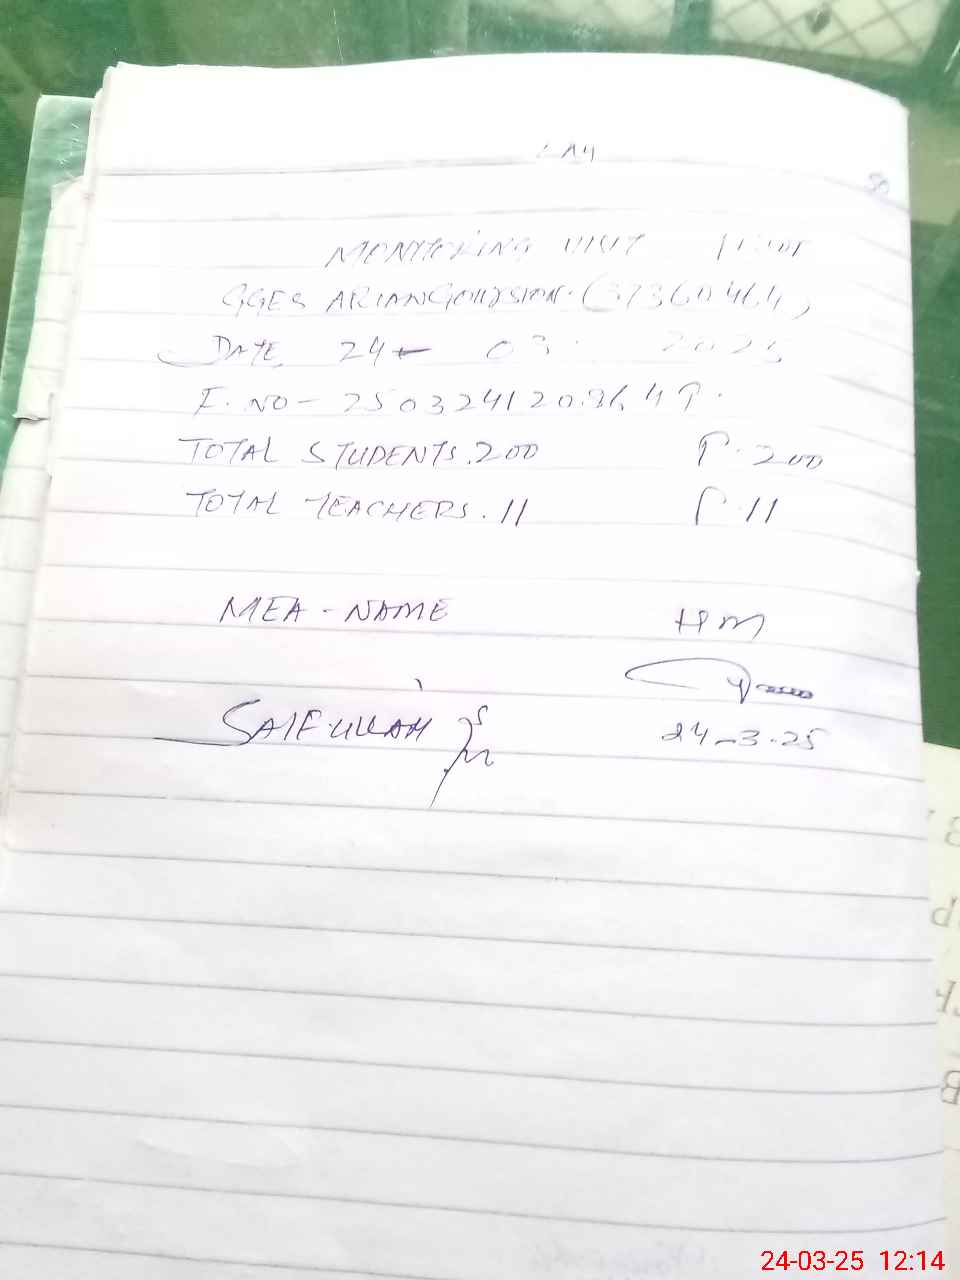 50
MONITORING VISIT
GGES (37360464)
DATE 24- 03. 2025
F. NO - 250324120
TOTAL STUDENTS. 200 P. 200
TOTAL TEACHERS. 11 P. 11
MEA - NAME HM
SAIFULLAH 24-3-25
24-03-25 12:14